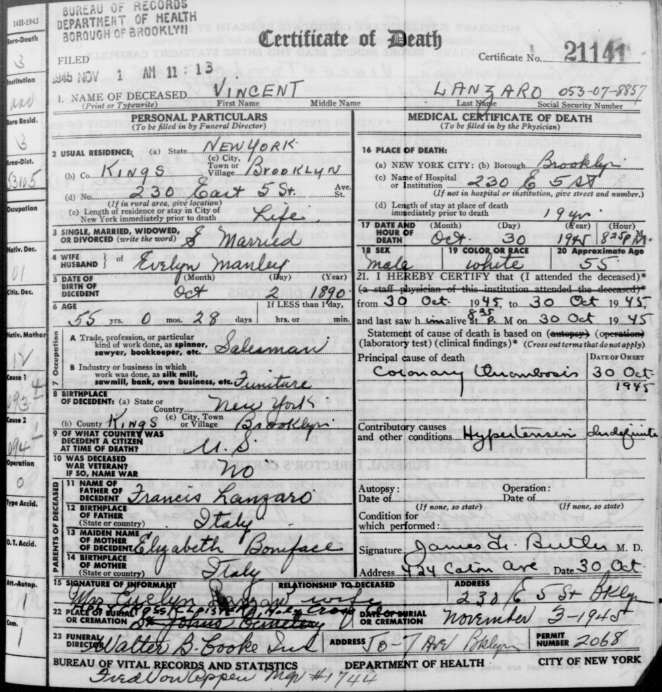 BUREAU OF RECORDS
DEPARTMENT OF HEALTH
BOROUGH OF BROOKLYN
Certificate of Death
FILED
1945 NOV 1 AM 11:13
Certificate No. 21141
1. NAME OF DECEASED VINCENT LANZARO 053-07-8857
(Print or Typewrite) First Name Middle Name Last Name Social Security Number
PERSONAL PARTICULARS
(To be filled in by Funeral Director)
2 USUAL RESIDENCE: (a) State NEW YORK
(b) Co. KINGS (c) City, Town or Village BROOKLYN
(d) No. 230 East 5 St. Ave. St.
(If in rural area, give location)
(e) Length of residence or stay in City of New York immediately prior to death Life
3 SINGLE, MARRIED, WIDOWED, OR DIVORCED (write the word) Married
4 WIFE HUSBAND } of Evelyn Manley
5 DATE OF BIRTH OF DECEDENT (Month) (Day) (Year)
Oct 2 1890
6 AGE If LESS than 1 day,
55 yrs. 0 mos. 28 days hrs. or min.
7 Occupation
A Trade, profession, or particular kind of work done, as spinner, sawyer, bookkeeper, etc. Salesman
B Industry or business in which work was done, as silk mill, sawmill, bank, own business, etc. Funiture
8 BIRTHPLACE OF DECEDENT: (a) State or Country New York
(b) County KINGS (c) City, Town or Village Brooklyn
9 OF WHAT COUNTRY WAS DECEDENT A CITIZEN AT TIME OF DEATH? U.S
10 WAS DECEASED WAR VETERAN? IF SO, NAME WAR NO
PARENTS OF DECEASED
11 NAME OF FATHER OF DECEDENT Francis Lanzaro
12 BIRTHPLACE OF FATHER (State or country) Italy
13 MAIDEN NAME OF MOTHER OF DECEDENT Elizabeth Boniface
14 BIRTHPLACE OF MOTHER (State or country) Italy
MEDICAL CERTIFICATE OF DEATH
(To be filled in by the Physician)
16 PLACE OF DEATH:
(a) NEW YORK CITY: (b) Borough Brooklyn
(c) Name of Hospital or Institution 230 E 5 St
(If not in hospital or institution, give street and number.)
(d) Length of stay at place of death immediately prior to death 19 yr
17 DATE AND HOUR OF DEATH (Month) (Day) (Year) (Hour)
Oct. 30 1945 8 25 P M.
18 SEX 19 COLOR OR RACE 20 Approximate Age
male white 55
21. I HEREBY CERTIFY that (I attended the deceased)*
(a staff physician of this institution attended the deceased)*
from 30 Oct 1945, to 30 Oct 1945
and last saw him alive at M on 30 Oct 1945
Statement of cause of death is based on (autopsy) (operation)
(laboratory test) (clinical findings)* (Cross out terms that do not apply)
Principal cause of death DATE OF ONSET
Coronary thrombosis 30 Oct 1945
Contributory causes and other conditions Hypertension Indefinite
Autopsy: Operation:
Date of Date of
(If none, so state) (If none, so state)
Condition for which performed:
Signature James L. Butler M. D.
Address 424 Caton Ave Date 30 Oct
15 SIGNATURE OF INFORMANT RELATIONSHIP TO DECEASED ADDRESS
Mrs Evelyn wife 230 E 5 St Bklyn
22 PLACE OF BURIAL OR CREMATION Holy Cross St Johns Cemetery DATE OF BURIAL OR CREMATION November 3-1945
23 FUNERAL DIRECTOR Walter B. Cooke Inc ADDRESS 50-7 Ave Bklyn PERMIT NUMBER 2068
BUREAU OF VITAL RECORDS AND STATISTICS DEPARTMENT OF HEALTH CITY OF NEW YORK
Fred Von Appen Mgr #1744
14H-1943
Boro-Death
3
Institution
Boro Resid.
3
Area-Dist.
Occupation
Nativ. Dec.
01
Citiz. Dec.
Nativ. Mother
12
Cause 1
Cause 2
Operation
0
Type Accid.
O.T. Accid.
Att.-Autop.
1
Com.
1